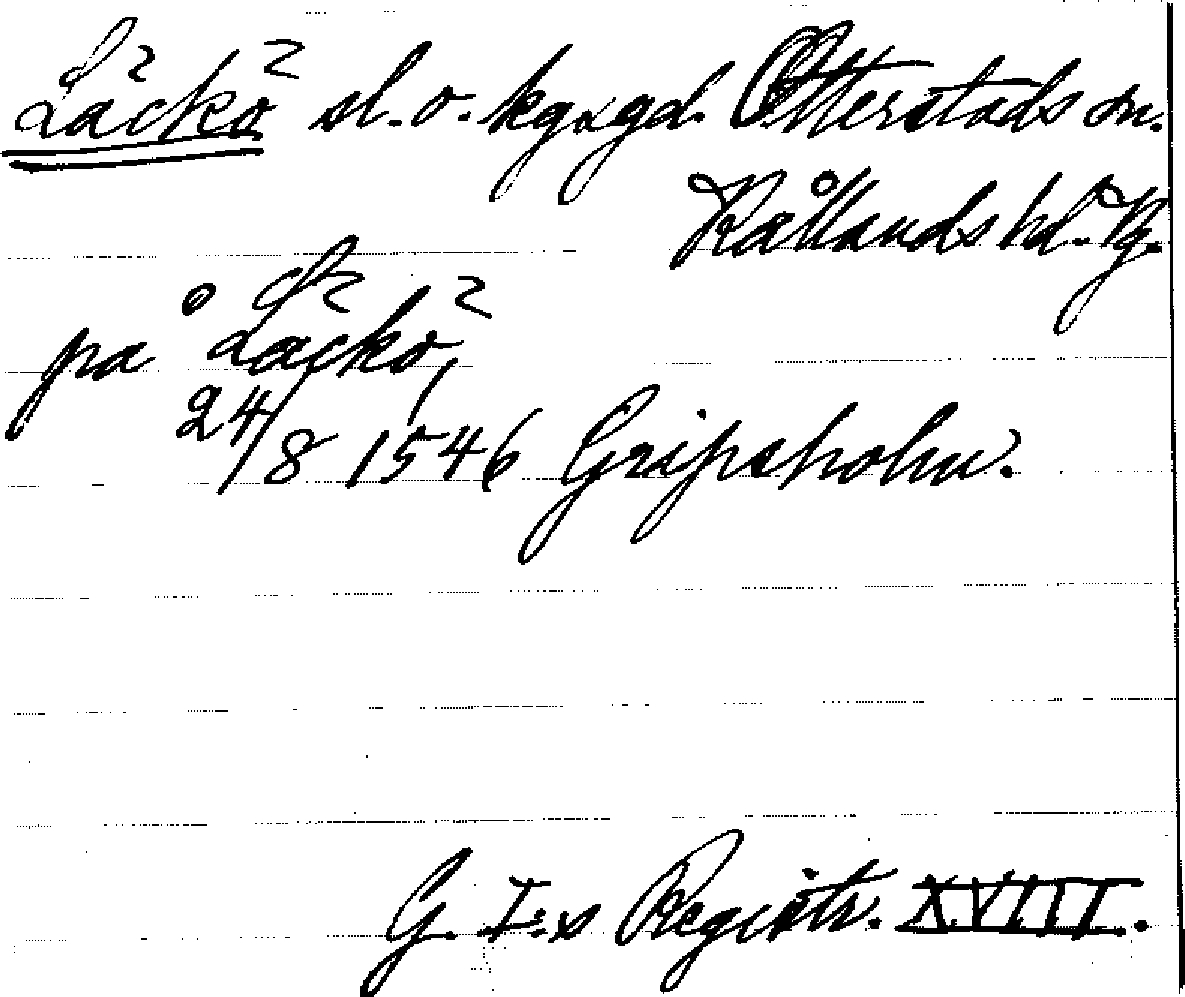 Läckö sl. o. kg.gd. Otterstads sn.
Kållands hd. Vg.
på Läckö,
24/8 1546 Gripsholm.
G. I:s Registr. XVIII.